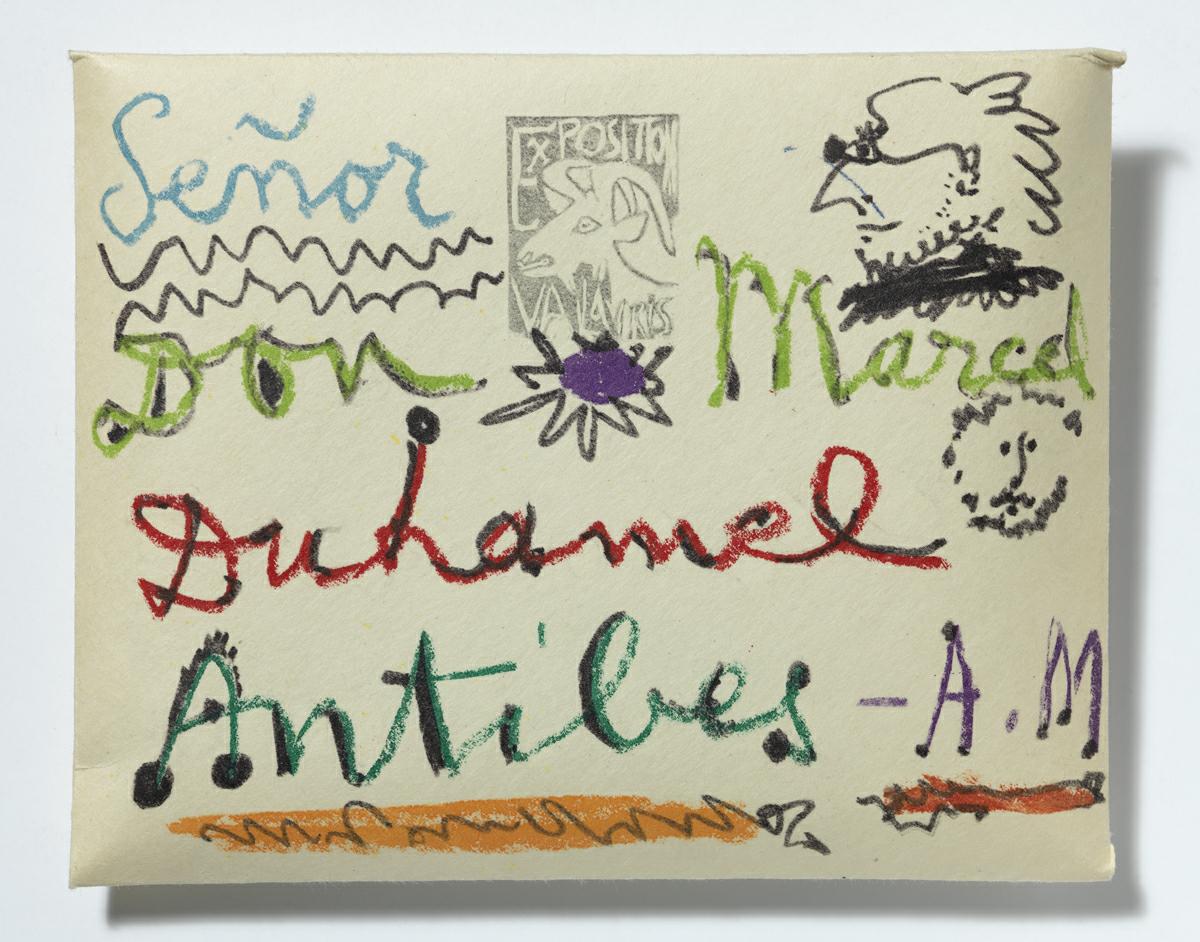 Señor
EXPOSITION
VALAURIS
Don Marcel
Duhamel
Antibes - A.M